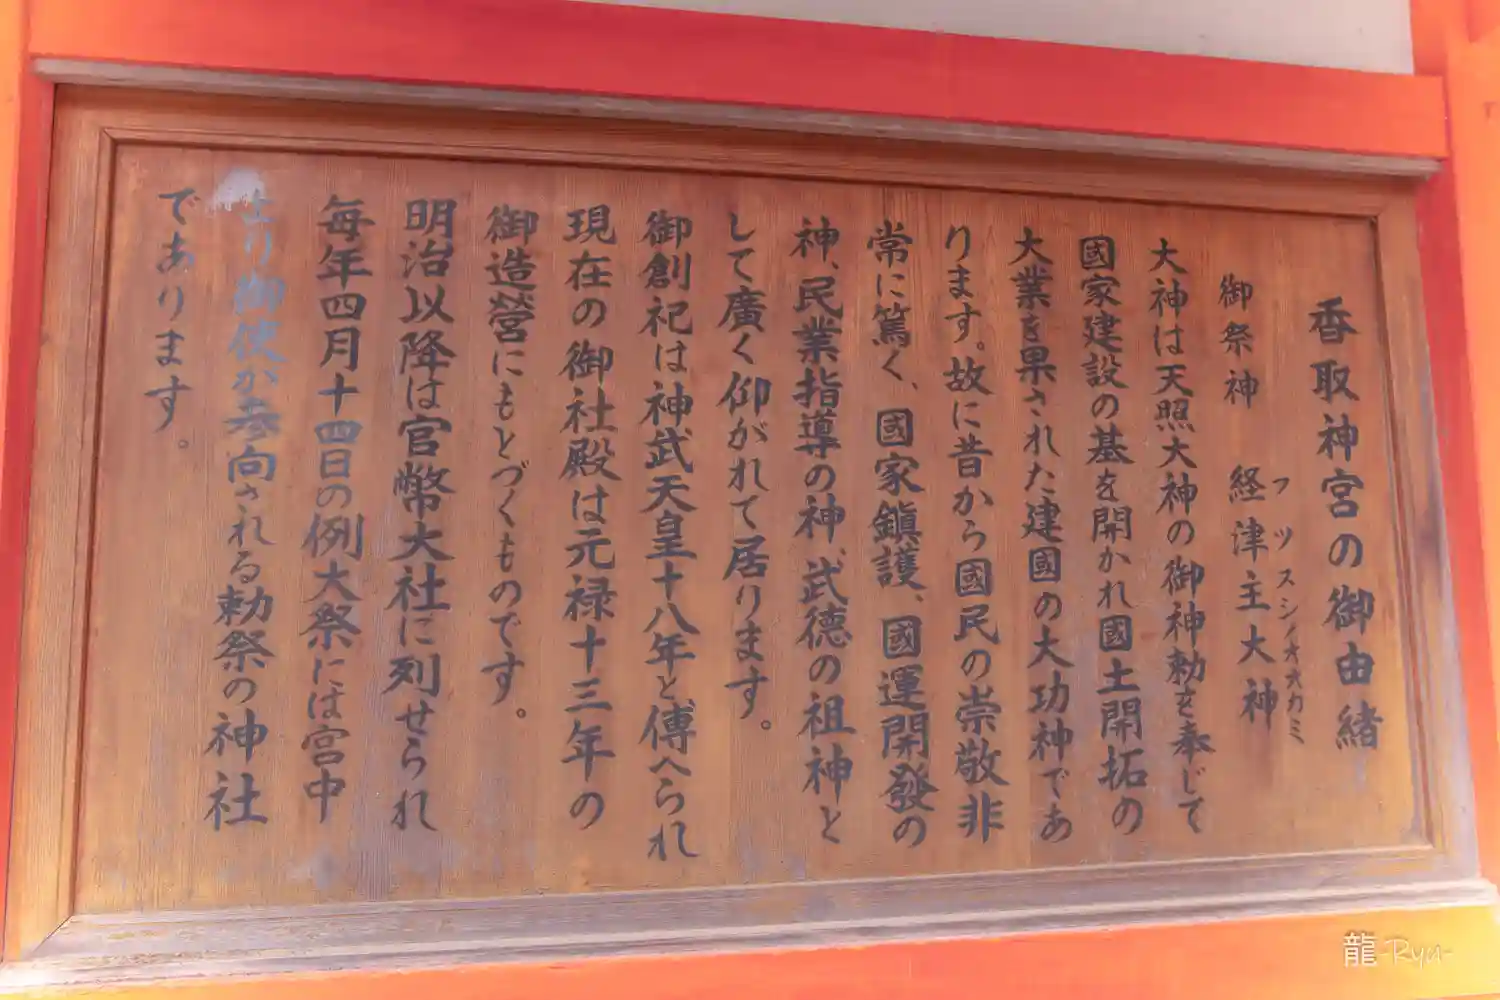 香取神宮の御由緒
御祭神　経津主大神
フツヌシノオオカミ
大神は天照大神の御神勅を奉じて
國家建設の基を開かれ國土開拓の
大業を果された建國の大功神であ
ります。故に昔から國民の崇敬非
常に篤く、國家鎮護、國運開發の
神、民業指導の神、武徳の祖神と
して廣く仰がれて居ります。
御創祀は神武天皇十八年と傳へられ
現在の御社殿は元禄十三年の
御造營にもとづくものです。
明治以降は官幣大社に列せられ
毎年四月十四日の例大祭には宮中
より御使が参向される勅祭の神社
であります。
龍-Ryu-